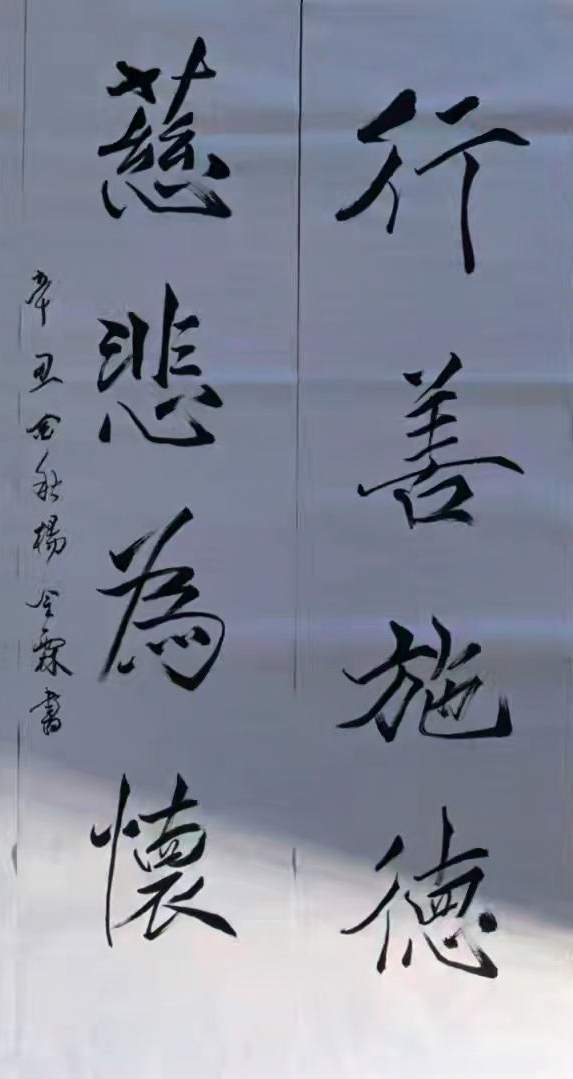 行善施德
慈悲為懷
辛丑金秋楊金霖書